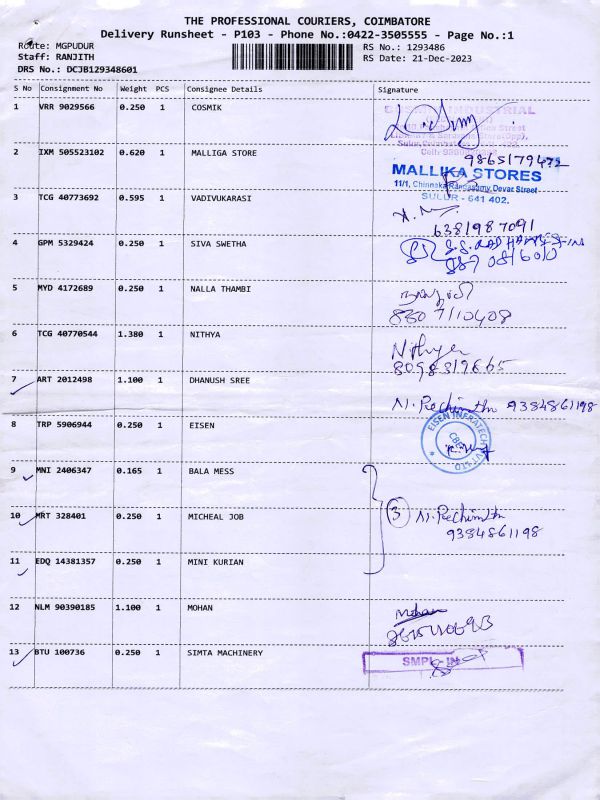 THE PROFESSIONAL COURIERS, COIMBATORE
Delivery Runsheet - P103 - Phone No.:0422-3505555 - Page No.:1
Route: MGPUDUR
RS No.: 1293486
Staff: RANJITH
RS Date: 21-Dec-2023
DRS No.: DCJB129348601
S No Consignment No Weight PCS Consignee Details Signature
1 VRR 9029566 0.250 1 COSMIK
2 IXM 505523102 0.620 1 MALLIGA STORE
MALLIKA STORES
11/1, Chinnaka Rangasamy Devar Street
SULUR - 641 402.
3 TCG 40773692 0.595 1 VADIVUKARASI
6381987091
4 GPM 5329424 0.250 1 SIVA SWETHA
5 MYD 4172689 0.250 1 NALLA THAMBI
8807110408
6 TCG 40770544 1.380 1 NITHYA
Nithya
7 ART 2012498 1.100 1 DHANUSH SREE
9384861198
8 TRP 5906944 0.250 1 EISEN
EISEN INFRATECH PVT LTD
CBE
9 MNI 2406347 0.165 1 BALA MESS
10 MRT 328401 0.250 1 MICHEAL JOB
3
9384861198
11 EDQ 14381357 0.250 1 MINI KURIAN
12 NLM 90390185 1.100 1 MOHAN
Mohan
13 BTU 100736 0.250 1 SIMTA MACHINERY
SMPL-IN